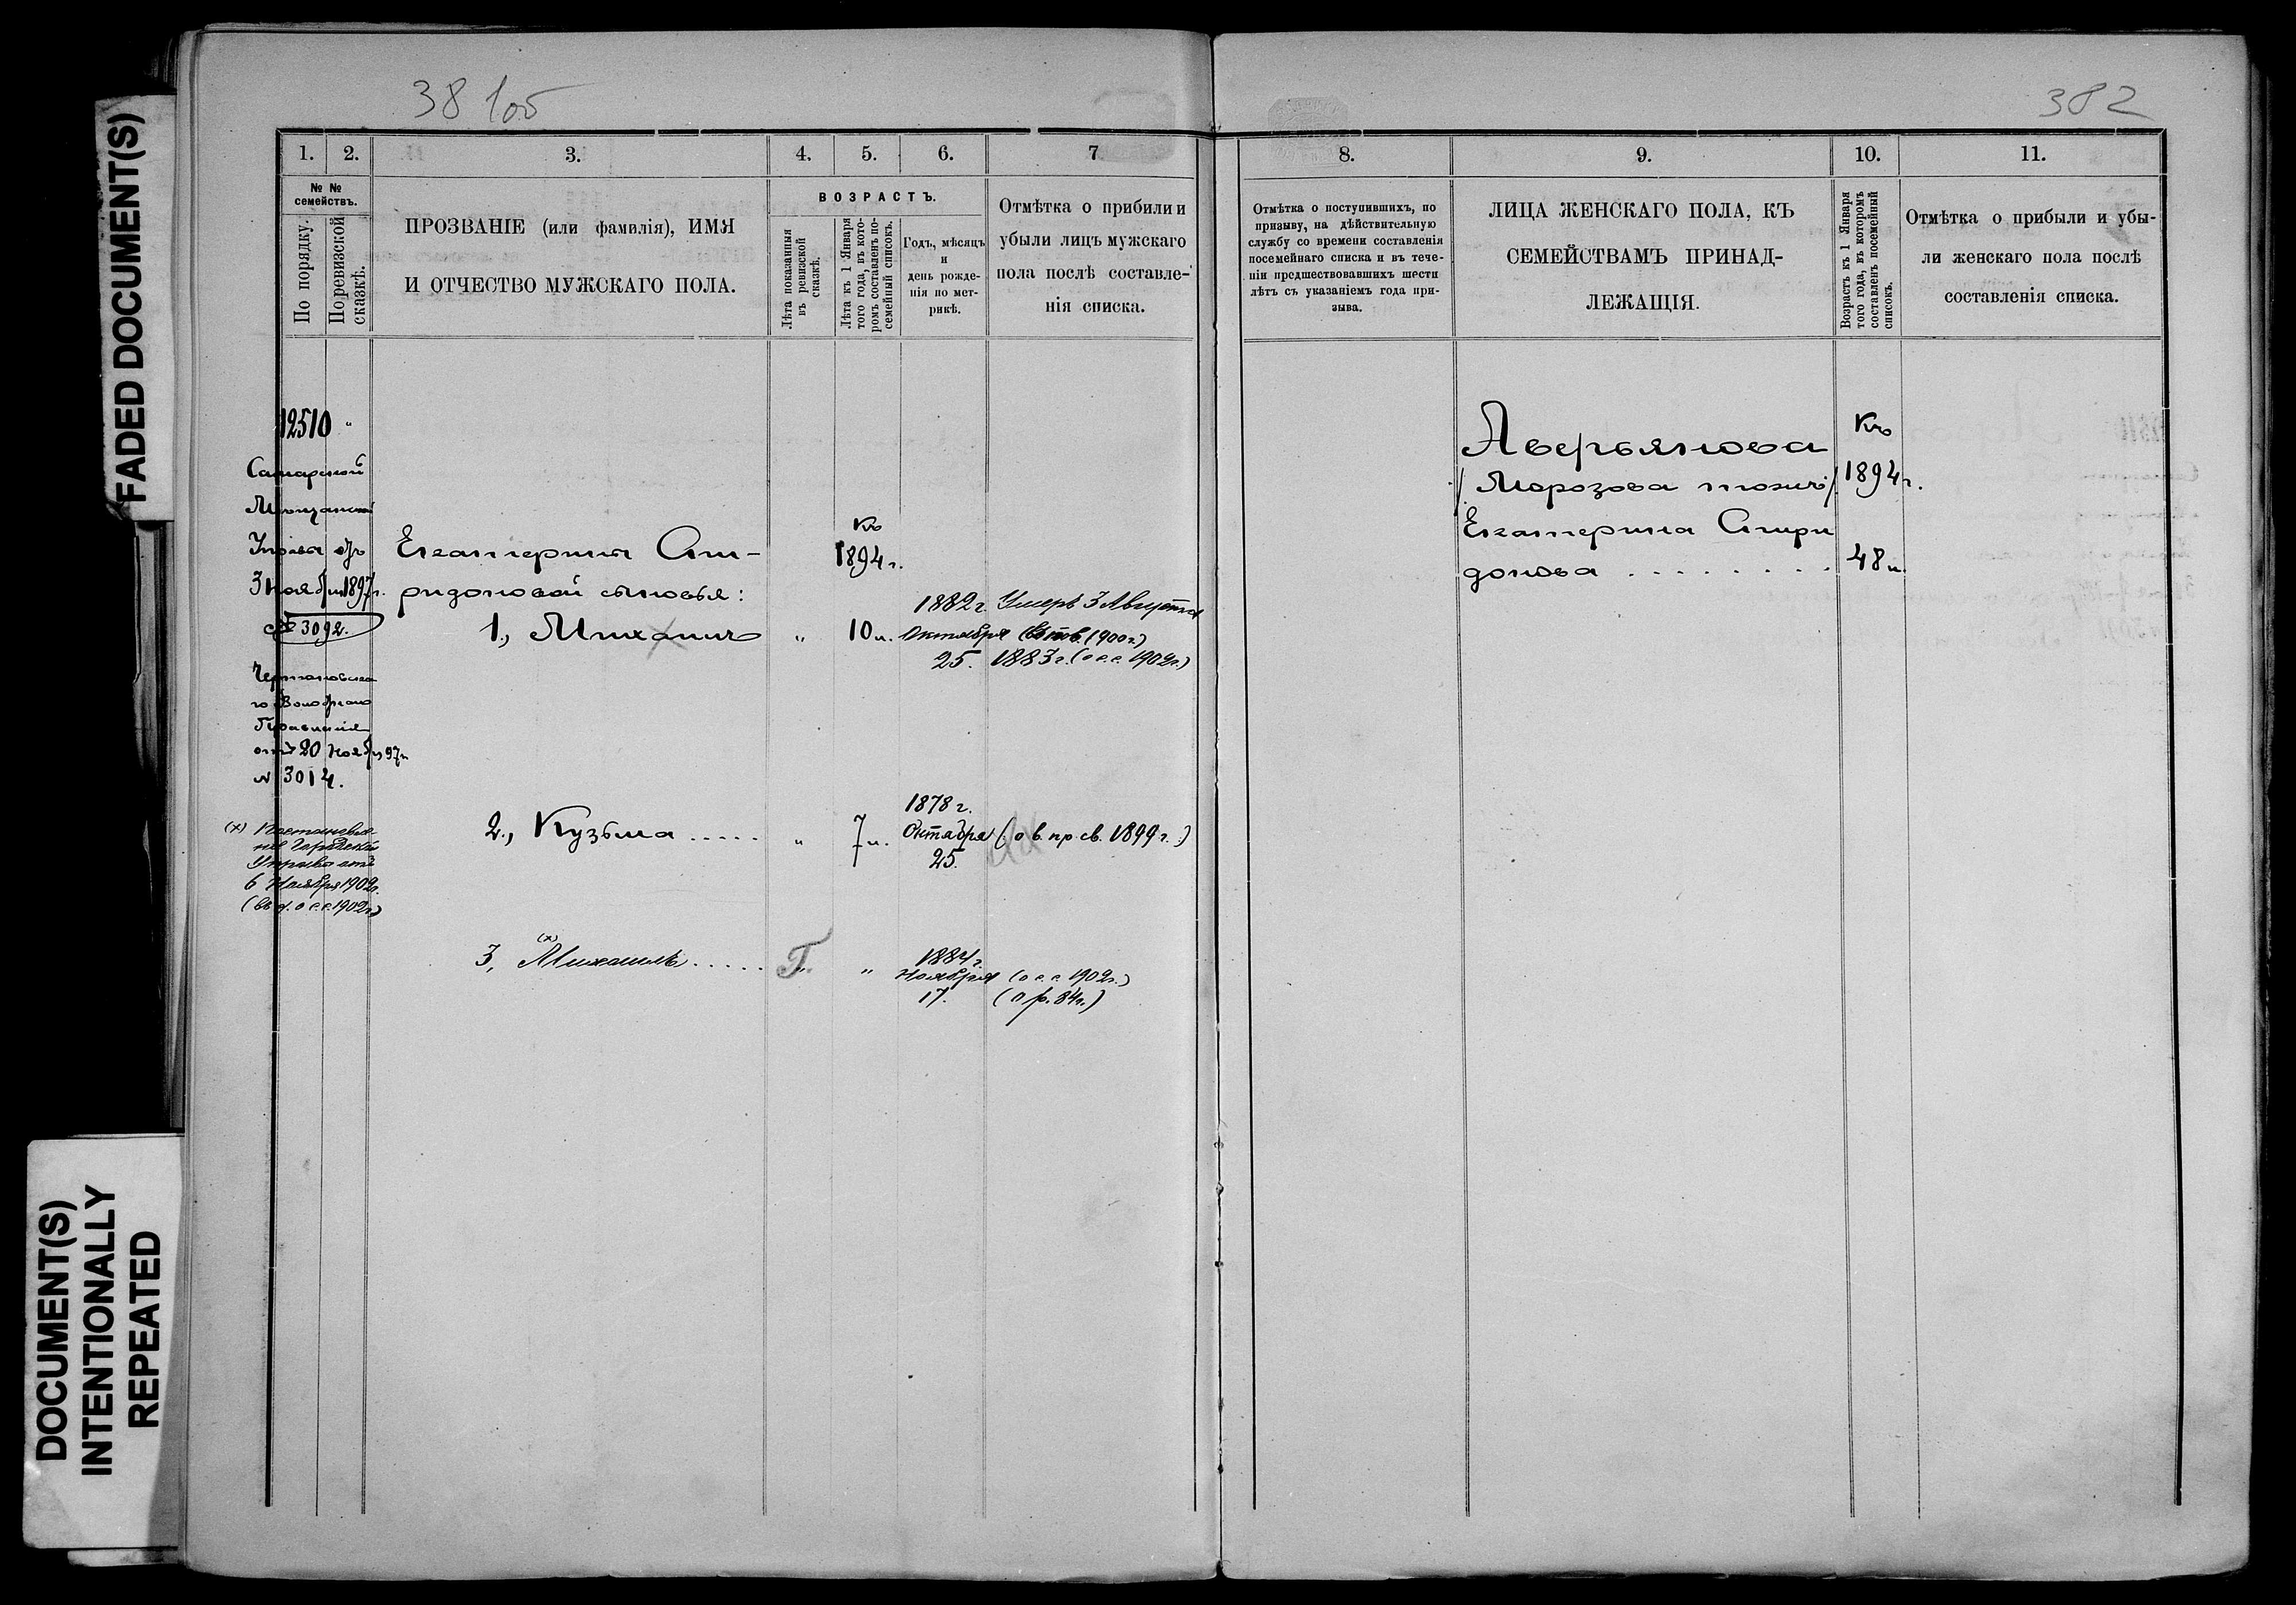 FADED DOCUMENT(S)
DOCUMENT(S)
INTENTIONALLY
REPEATED
38 1об
1.
2.
3.
4.
5.
6.
7
№ №
семействъ.
По порядку.
По ревизской
сказкѣ.
ПРОЗВАНІЕ (или фамилія), ИМЯ
И ОТЧЕСТВО МУЖСКАГО ПОЛА.
ВОЗРАСТЪ.
Лѣта показанныя
въ ревизской
сказкѣ.
Лѣта къ 1 Января
того года, въ кото-
ромъ составленъ по-
семейный списокъ.
Годъ, мѣсяцъ
и
день рожде-
нія по мет-
рикѣ.
Отмѣтка о прибыли и
убыли лицъ мужскаго
пола послѣ составле-
нія списка.
12510 "
Самарской
Мѣщанской
Управы отъ
3 Ноября 1897 г.
№ 3092.
го Волостного
Правленія
отъ 20 Ноября 97 г
№ 3014.
(х)
Управы отъ
6 Ноября 1902 г.
Екатерины Спи-
ридоновой сыновья:
Къ
1894 г.
1., Михаилъ
"
10 л.
1882 г.
Октября
25.
Умеръ 3 Августа
1883 г. (о с. с. 1902 г.)
2., Кузьма .....
"
7 л.
1878 г.
Октября
25.
(о в. пр. св. 1899 г.)
(х)
3, Михаилъ .....
Г
"
1884 г.
Ноября
17.
(о с. с. 1902 г.)
(о р. 84 г.)
382
8.
9.
10.
11.
Отмѣтка о поступившихъ, по
призыву, на дѣйствительную
службу со времени составленія
посемейнаго списка и въ тече-
ніи предшествовавшихъ шести
лѣтъ съ указаніемъ года при-
зыва.
ЛИЦА ЖЕНСКАГО ПОЛА, КЪ
СЕМЕЙСТВАМЪ ПРИНАД-
ЛЕЖАЩІЯ.
Возрастъ къ 1 Января
того года, въ которомъ
составленъ посемейный
списокъ.
Отмѣтка о прибыли и убы-
ли женскаго пола послѣ
составленія списка.
Аверьянова
/ Морозова тожъ /
Екатерина Спири
донова .........
Къ
1894 г.
48 л.